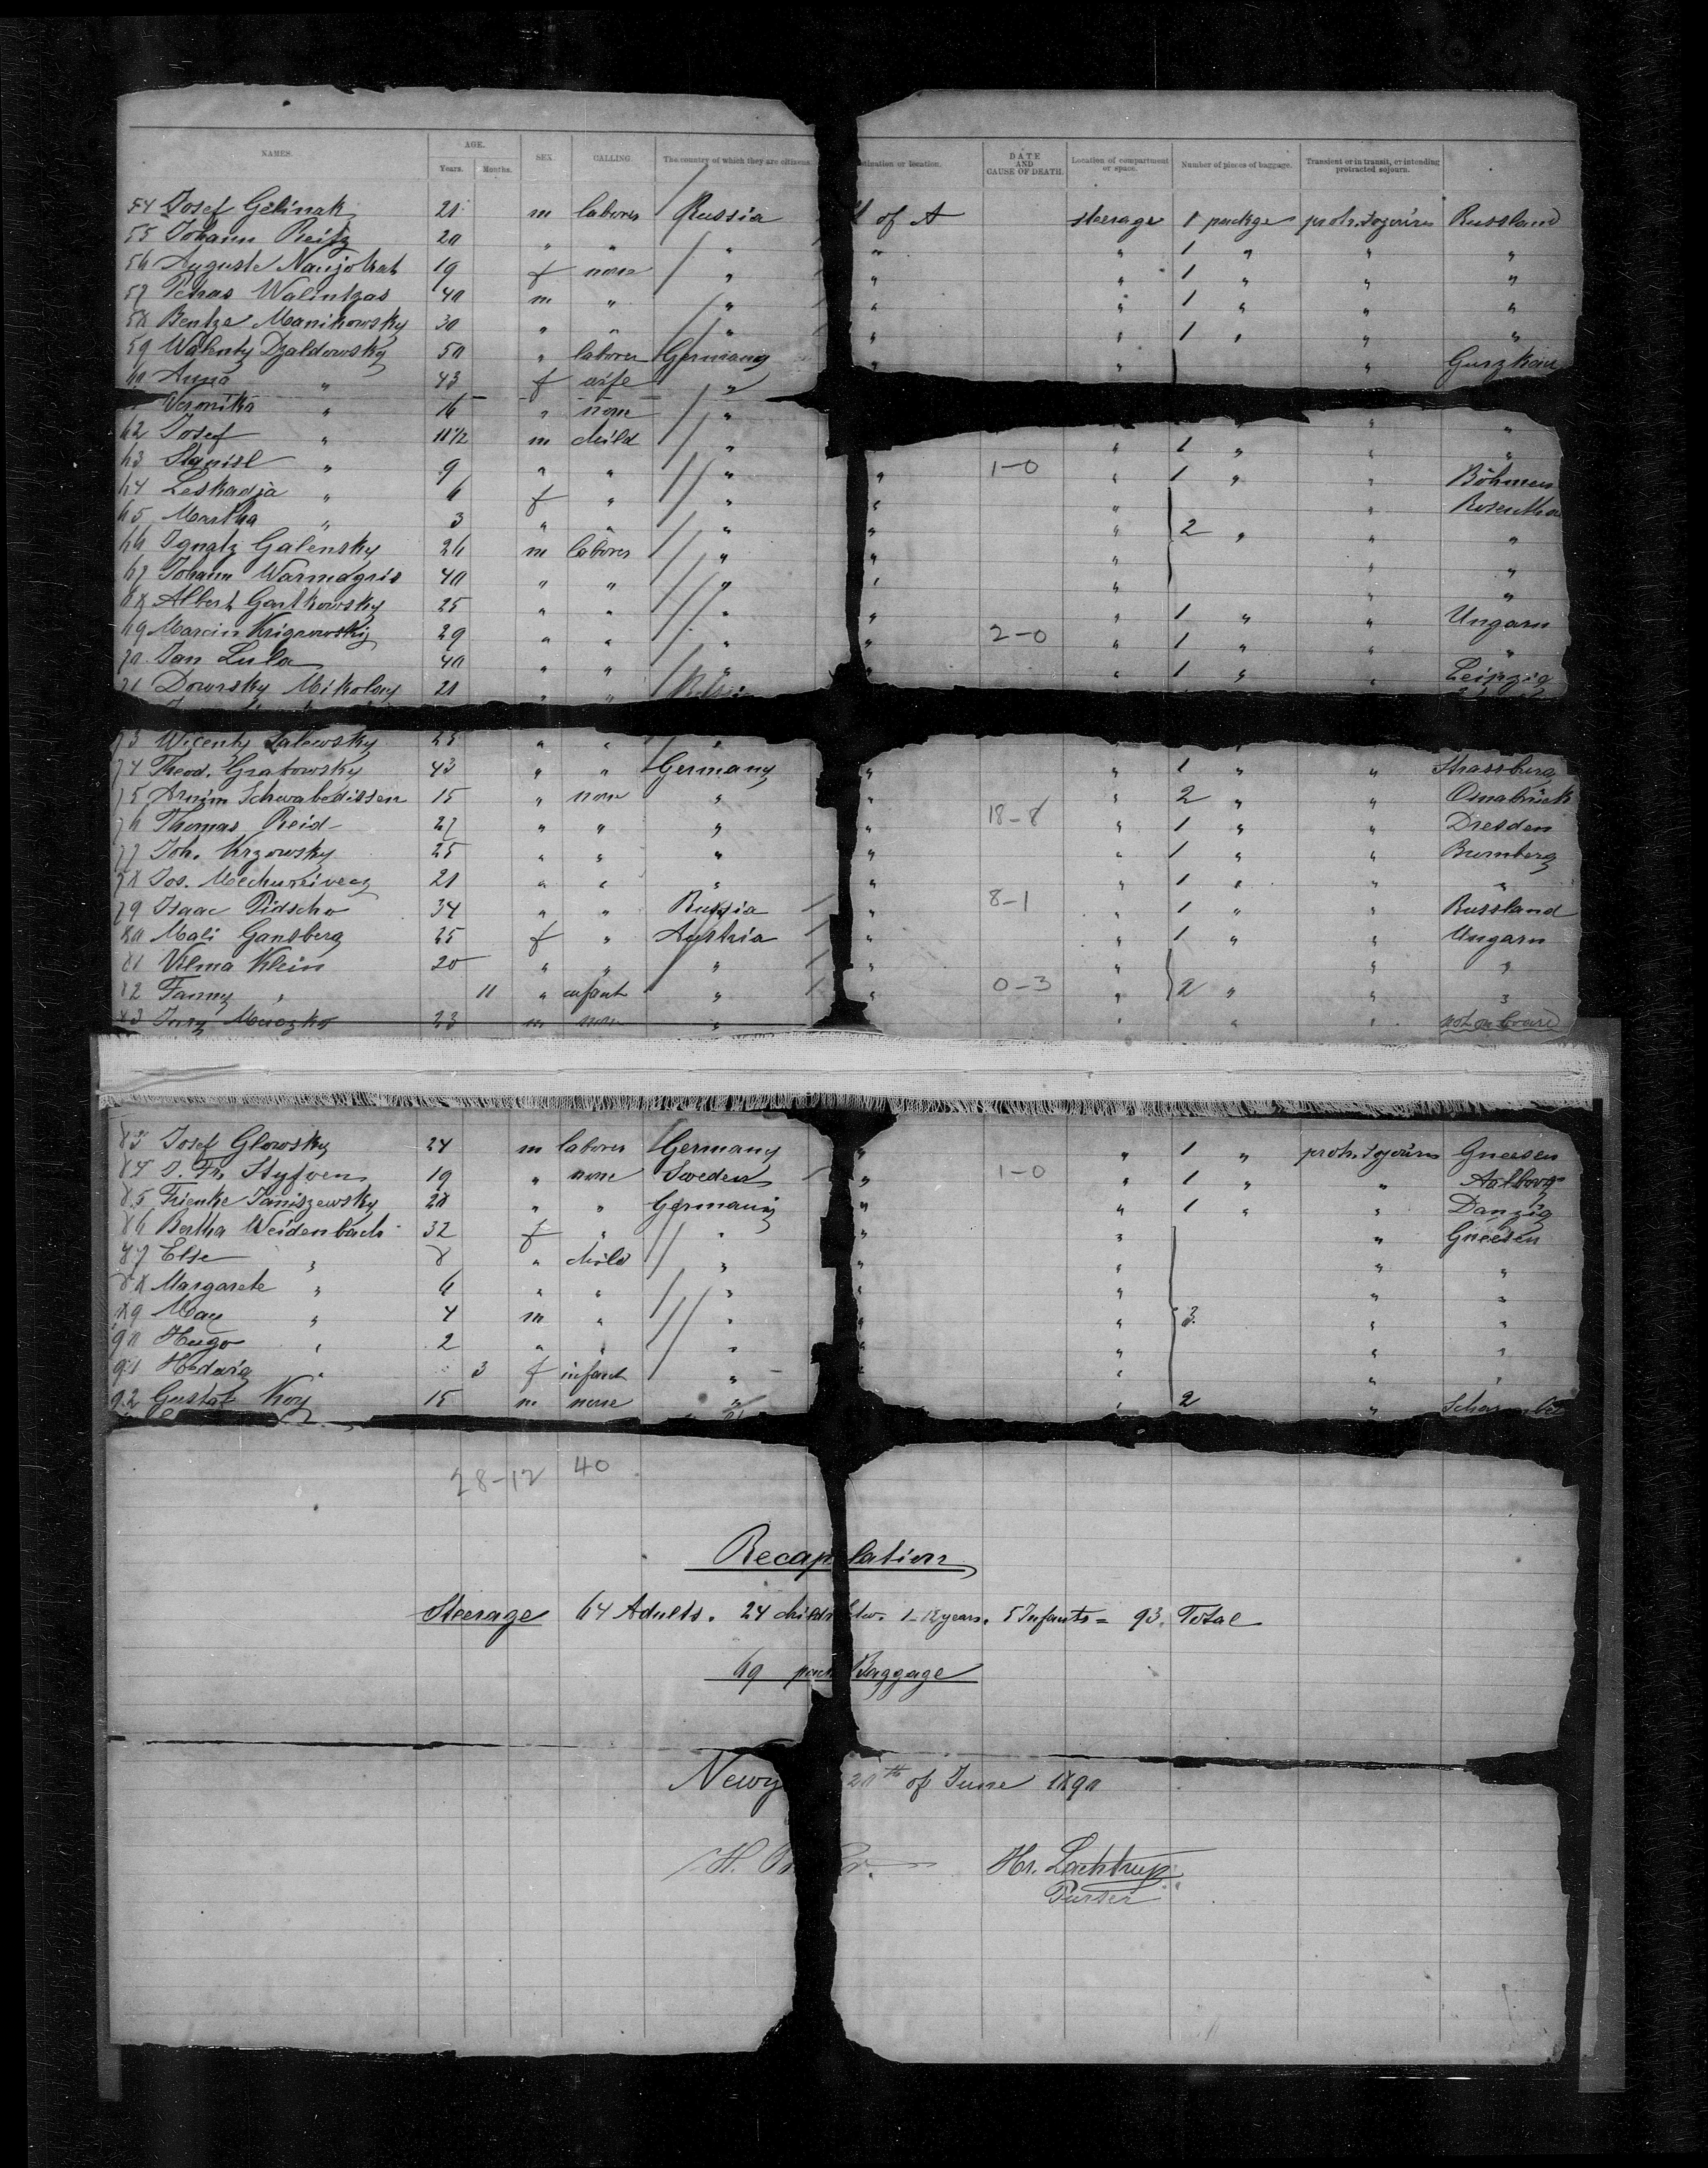 NAMES. AGE. Years. Months. SEX. CALLING. The country of which they are citizens. ination or location. DATE AND CAUSE OF DEATH. Location of compartment or space. Number of pieces of baggage. Transient or in transit, or intending protracted sojourn.
54 Josef Gelinak 21 m laborer Russia of A steerage 1 packge protr. sojourn Russland
55 Johann Reitz 20 " " " " " 1 " " "
56 Auguste Naujokat 19 f none " " " 1 " " "
57 Petras Walintzas 40 m " " " " 1 " " "
58 Bentze Manikowsky 30 " " " " " 1 " " "
59 Walenty Dzaldowsky 50 " laborer Germany " " "
60 Anna " 43 f wife "
Veronika " 16 " none "
62 Josef " 11 1/2 m child " " 1 " " "
63 Stanisl " 9 " " " " 1-0 " 1 " " Böhmen
64 Leskadja " 6 f " " " " "
65 Martha " 3 " " " " " 2 " " "
66 Ignatz Galensky 26 m laborer " " " " "
67 Johann Warmdgris 40 " " " " " " "
68 Albert Gartkowsky 25 " " " " " 1 " " Ungarn
69 Marcin 29 " " " " 2-0 " 1 " " "
70 Jan Lula 40 " " " " " 1 " " Leipzig
71 Dowrsky Mikolay 21 " "
73 Wicenty Salewsky 25 " " "
74 Theod. Grabowsky 43 " " Germany " " 1 " " Strassburg
75 Armin Schwabedissen 15 " none " " " 2 " " Osnabrück
76 Thomas Reid 27 " " " " 18-8 " 1 " " Dresden
77 Joh. Krzowsky 25 " " " " " 1 " " Bromberg
78 Jos. 21 " " " " " 1 " " "
79 Isaac Pidscho 34 " " Russia " 8-1 " 1 " " Russland
80 Mali Gansberg 25 f " Austria " " 1 " " Ungarn
81 Vilma Klein 20 " " " " " " "
82 Fanny " 11 " infant " " 0-3 " 2 " " "
83 23 m none " " " " not on board
83 Josef Glowsky 24 m laborer Germany " " 1 " protr. sojourn Gnesen
84 O. Fr. Styfven 19 " none Sweden " 1-0 " 1 " " Aalborg
85 Frienke Janiszewsky 28 " " Germany " " 1 " " Danzig
86 Bertha Weidenbach 32 f " " " " " Gneesen
87 Else " 8 " child " " " " "
88 Margarete " 6 " " " " " " "
89 Max " 4 m " " " " 3. " "
90 Hugo " 2 " " " " " " "
91 Hedwig " 3 f infant " " " " "
92 Gustav Koy 15 m none " " 2 "
28-12 40
Recap lation
Steerage 64 Adults. 24 childr betw. 1-12 years. 5 Infants = 93. Total
69 pack Baggage
Newy 20th of June 1890
H. Hr. Lachtrup
Purser